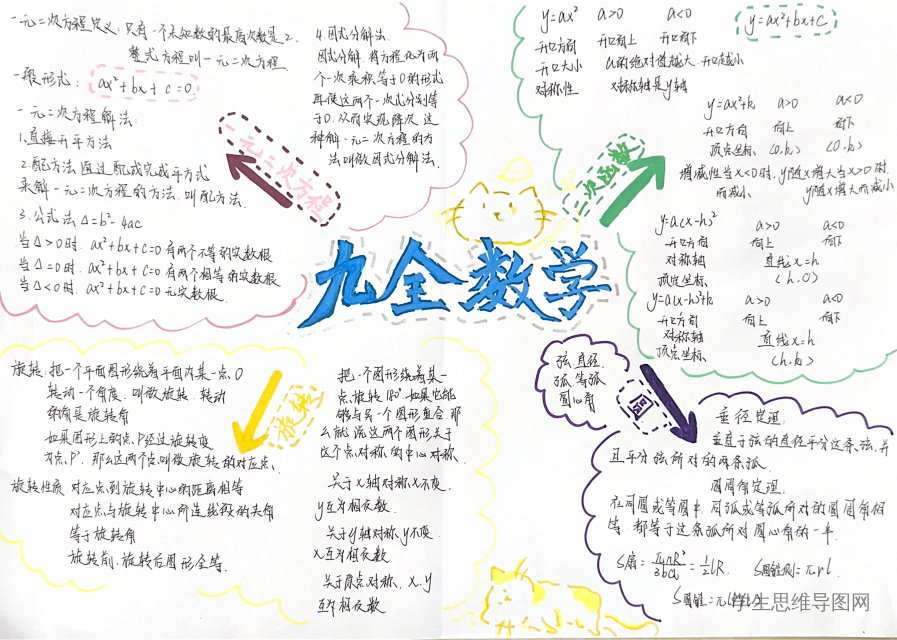 一元二次方程定义:只有一个未知数的最高次数是2.
整式方程叫一元二次方程.
一般形式: ax²+bx+c=0
一元二次方程解法:
1.直接开平方法
2.配方法.通过配成完成平方式
来解一元二次方程的方法.叫配方法.
3.公式法 Δ=b²-4ac
当Δ>0时. ax²+bx+c=0有两个不等的实数根
当Δ=0时. ax²+bx+c=0有两个相等的实数根
当Δ<0时. ax²+bx+c=0无实数根.
4.因式分解法.
因式分解.将方程化为两
个一次乘积等于0的形式
再使这两个一次式分别等
于0.从而实现降次.这
种解一元二次方程的方
法叫做因式分解法.
一元二次方程
二次函数
y=ax² a>0 a<0
开口方向 开口向上 开口向下
开口大小 a的绝对值越大.开口越小
对称性 对称轴是y轴
y=ax²+bx+c
y=ax²+k a>0 a<0
开口方向 向上 向下
顶点坐标 (0.k) (0.k)
增减性当x<0时.y随x增大当x>0时.
而减小. y随x增大而减小
y=a(x-h)² a>0 a<0
开口方向 向上 向下
对称轴 直线x=h
顶点坐标 (h.0)
y=a(x-h)²+k a>0 a<0
开口方向 向上 向下
对称轴 直线x=h
顶点坐标 (h.k)
九全数学
旋转.把一个平面图形绕着平面内某一点.O
转动一个角度.叫做旋转.转动
的角是旋转角
如果图形上的点.P经过旋转变
为点.P'.那么这两个点.叫做旋转的对应点.
旋转性质 对应点到旋转中心的距离相等
对应点与旋转中心所连线段的夹角
等于旋转角
旋转前.旋转后图形全等.
旋转
把一个图形绕着某一
点.旋转180°.如果它能
够与另一个图形重合.那
么就说这两个图形关于
这个点对称的中心对称.
关于x轴对称x不变.
y互为相反数.
关于y轴对称.y不变.
x互为相反数
关于原点对称.x.y
互为相反数
弦.直径.
弧.等弧
圆心角
圆
垂径定理:
垂直于弦的直径平分这条弦.并
且平分弦所对的两条弧.
圆周角定理:
在同圆或等圆中.同弧或等弧所对的圆周角相
等.都等于这条弧所对圆心角的一半.
S扇=πnR²/360=½lR. S圆锥侧=πrl.
S圆锥=π
学生思维导图网